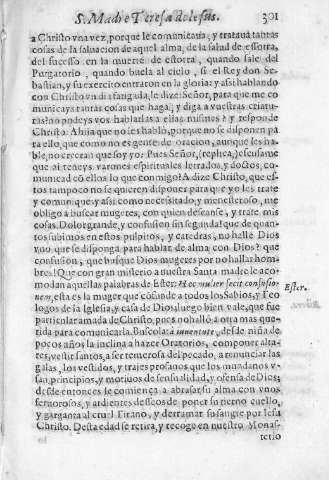 S. Madre Teresa de Iesus. 301
a Christo vna vez, porque le comunicaua, y trataua tantas
cosas de la saluacion de aquel alma, de la salud de essotra,
del sucesso en la muerte de estotra, quando sale del
Purgatorio, quando buela al cielo, si el Rey don Se-
bastian, y su exercito entraron en la gloria: y assi hablando
con Christo vn dia sangula, le dize: Señor, para que me co
municays tantas cosas que haga, y diga a vuestras criatu-
ras? no podeys vos hablarlas a ellas mismas? y responde
Christo: A hija que no se habló, porque no se disponen pa
ra ello, que como no es gente de oracion, aunque les ha-
ble, no creeran que soy yo: Pues Señor, (replica,) escusame
que ai teneys varones espirituales letrados, y doctos, co-
municad cō ellos lo que conmigo? A dize Christo, que es-
tos tampoco no se quieren disponer para que yo les trate
y comunique: y assi como necesitado, y menesteroso, me
obligo a buscar mugeres, con quien descanse, y trate mis
cosas. Dolor grande, y confusion sin segunda! que de quan-
tos subimos en estos pulpitos, y catedras, no halle Dios
vno que se disponga para hablar de alma con Dios? que
confusion, que busque Dios mugeres por no hallar hom-
bres! Que con gran misterio a nuestra Santa madre le aco-
modan aquellas palabras de Ester: Hoc mulier fecit confusio-
nem, esta es la muger que cōfunde a todos los Sabios, y Teo
Ester.
logos de la Iglesia, y casa de Dios, luego bien vale, que fue
particular amada de Christo, pues no halló a otra mas que-
rida para comunicarla. Buscola à iuuentute, desde niña de
pocos años la inclina a hazer Oratorios, componer alta-
res, vestir santos, a ser temerosa del pecado, a renunciar las
galas, los vestidos, y trajes profanos que los mundanos v-
san, principios, y motiuos de sensualidad, y ofensa de Dios;
desde entonces le comença a abrasar su alma con vnos
feruorosos, y ardientes desseos de poner su tierno cuello,
y garganta al cruel Tirano, y derramar su sangre por Iesu
Christo. Desta edad se retira, y recoge en nuestro Monas-
terio